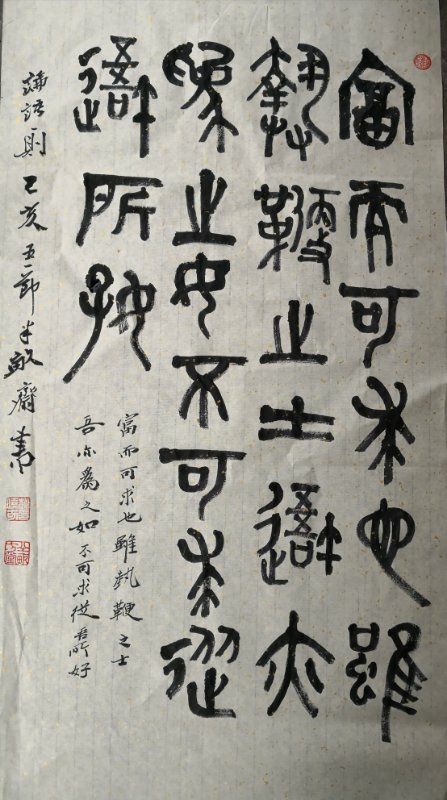 富而可求也雖
執鞭之士吾亦
為之如不可求從
吾所好
富而可求也雖執鞭之士
吾亦爲之如不可求從吾所好
論語則 己亥五一節 半畝齋書